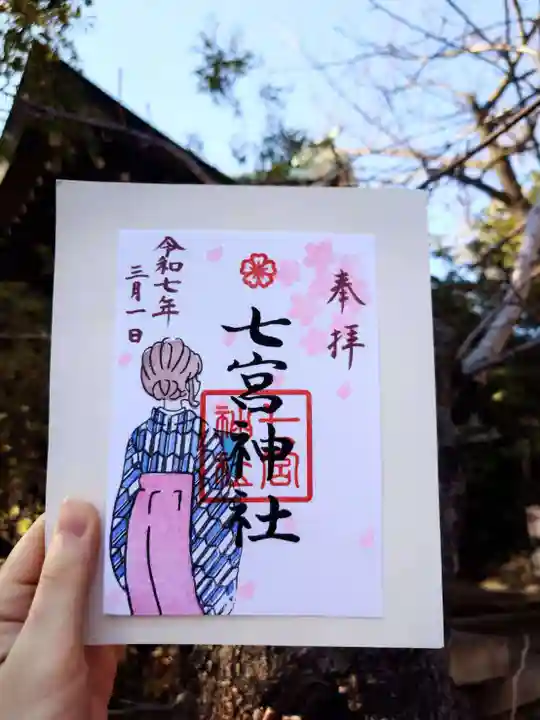 奉拝
七宮神社
七宮
神社
令和七年
三月一日